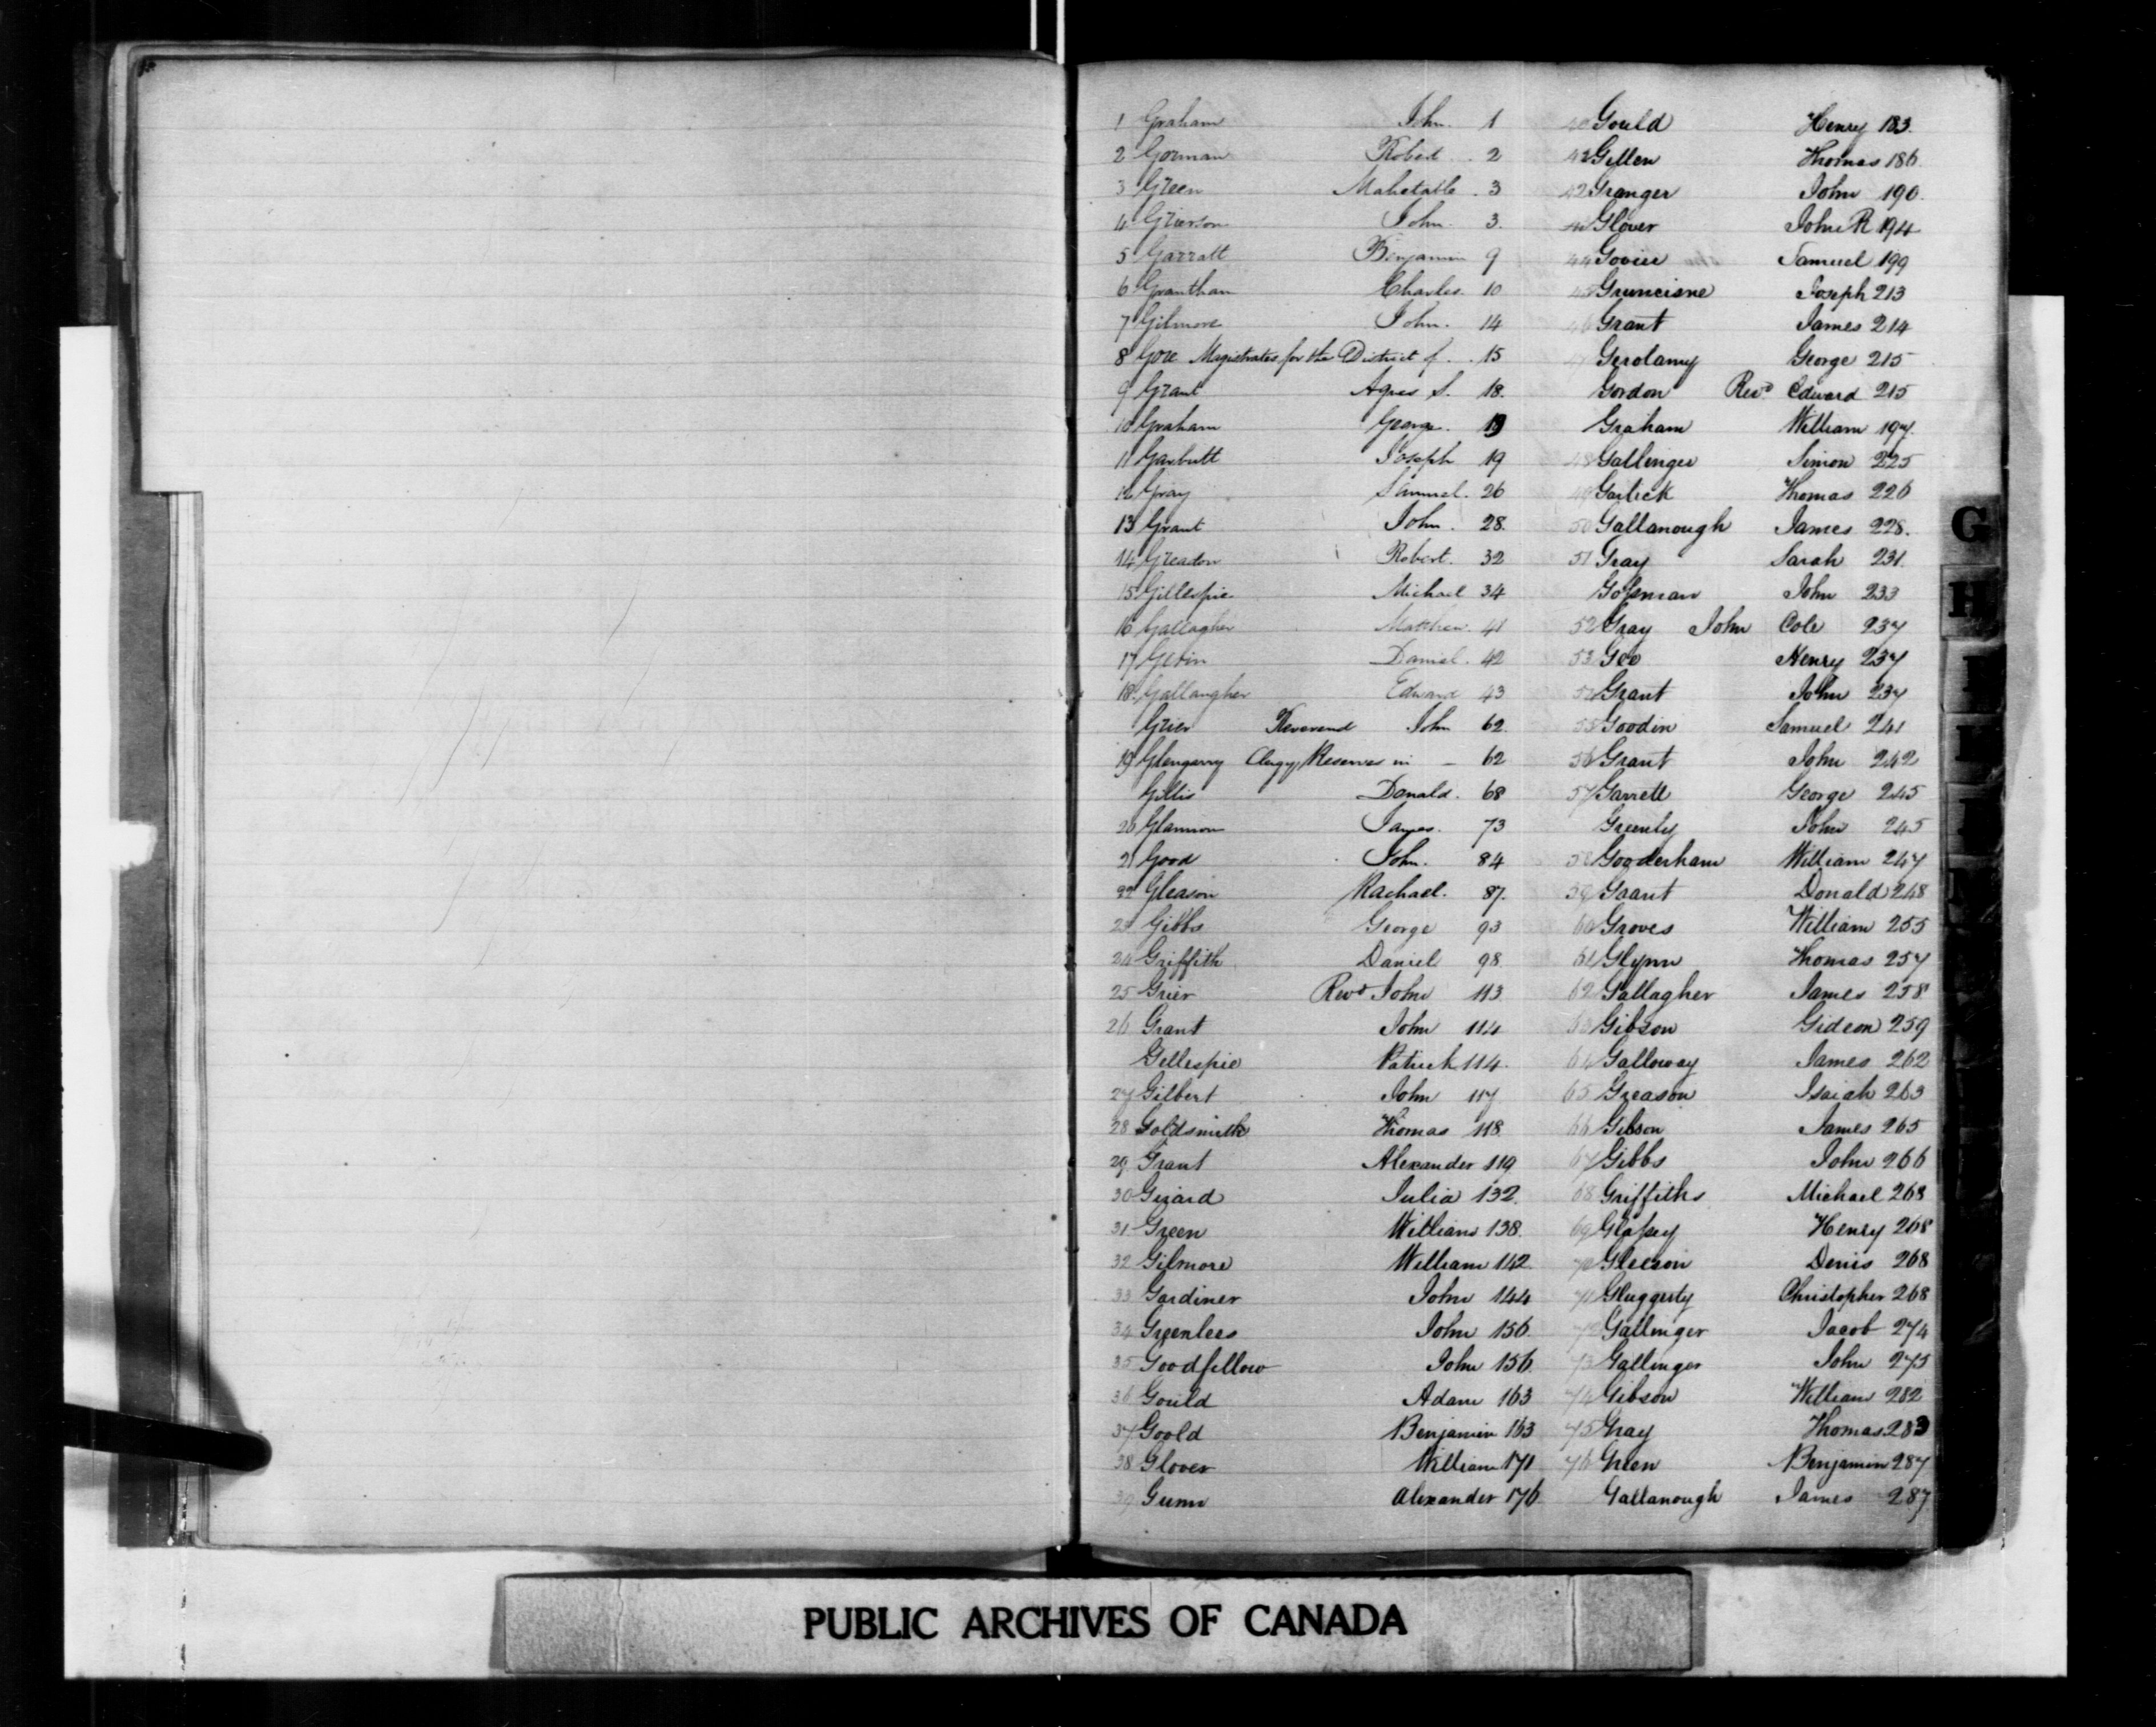 1 Graham John. 1
2 Gorman Robert . 2
3 Green Mahetable . 3
4 Grierson John. 3.
5 Garratt Benjamin 9
6 Grantham Charles. 10
7 Gilmore John. 14
8 Gore Magistrates for the District of . . 15
9 Grant Agnes S. 18.
10 Graham George. 19
11 Garbutt Joseph 19
12 Gray Samuel. 26
13 Grant John. 28.
14 Greadon Robert. 32
15 Gillespie Michael 34
16 Gallagher Matthew. 41
17 Daniel. 42
18 Gallangher Edward 43
Grier Reverend John 62.
19 Glengarry Clergy Reserves in — 62
Gillis Donald. 68
20 Glannon James. 73
21 Good John. 84
22 Gleason Rachael. 87.
23 Gibbs George 93
24 Griffith Daniel 98
25 Grier Revd John 113
26 Grant John 114
Gellespie Patrick 114.
27 Gilbert John 117
28 Goldsmith Thomas 118
29 Grant Alexander 119
30 Girard Julia 132.
31 Green William 138.
32 Gilmore William 142
33 Gardiner John 144
34 Greenlees John 156.
35 Goodfellow John 156
36 Gould Adam 163
37 Goold Benjamin 163
38 Glover William 171
39 Gunn Alexander 176
40 Gould Henry 183.
Gellen Thomas 186
42 Granger John 190.
Glover John R 194
44 Govier Samuel 199
45 Joseph 213
46 Grant James 214
Gerolamy George 215
Gordon Revd Edward 215
Graham William 197.
48 Gallinger Simon 225
49 Garlick Thomas 226
50 Gallanough James 228.
51 Gray Sarah 231.
Gossman John 233
52 Gray John Cole 237
53 Gee Henry 237
54 Grant John 237
55 Goodin Samuel 241
56 Grant John 242
57 Garrett George 245
Greenly John 245
58 Gooderham William 247
59 Grant Donald 248
60 Groves William 255
61 Glynn Thomas 257
62 Gallagher James 258
63 Gibson Gideon 259
64 Galloway James 262
65 Greason Isaiah 263
66 Gibson James 265
67 Gibbs John 266
68 Griffiths Michael 268
69 Glassey Henry 268
70 Gleeson Denis 268
71 Gluggerty Christopher 268
72 Gallinger Jacob 274
73 Gallinger John 275
74 Gibson William 282
75 Gray Thomas 283
76 Green Benjamin 287
Gallanough James 287
G
H
PUBLIC ARCHIVES OF CANADA